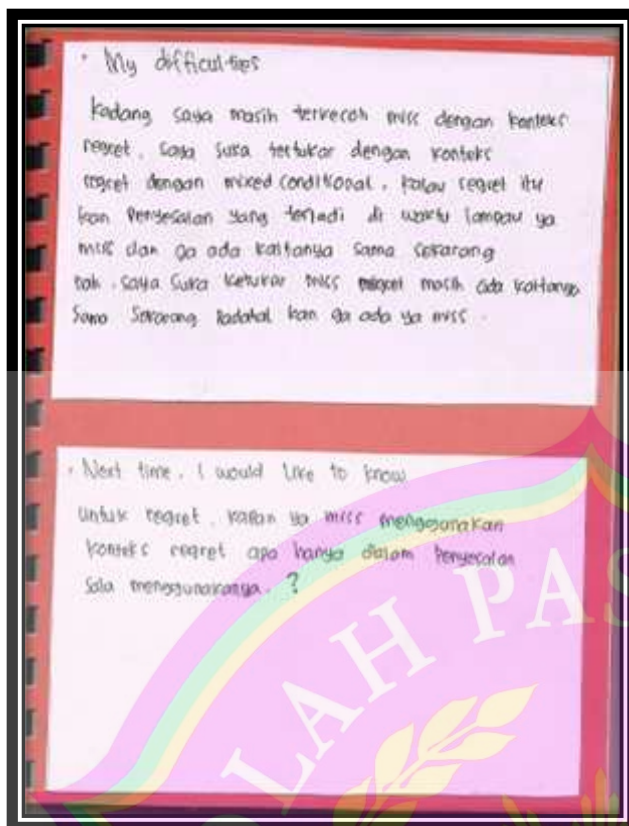 • My difficulties
Kadang saya masih terkecoh miss dengan konteks
regret, saya suka tertukar dengan konteks
regret dengan mixed conditional, kalau regret itu
kan penyesalan yang terjadi di waktu lampau ya
miss dan ga ada kaitanya sama sekarang
nah, saya suka ketukar miss regret masih ada kaitanya
sama sekarang padahal kan ga ada ya miss.
• Next time, I would like to know
untuk regret, kapan ya miss menggunakan
konteks regret apa hanya dalam penyesalan
saja menggunakanya. ?
LAH PAS